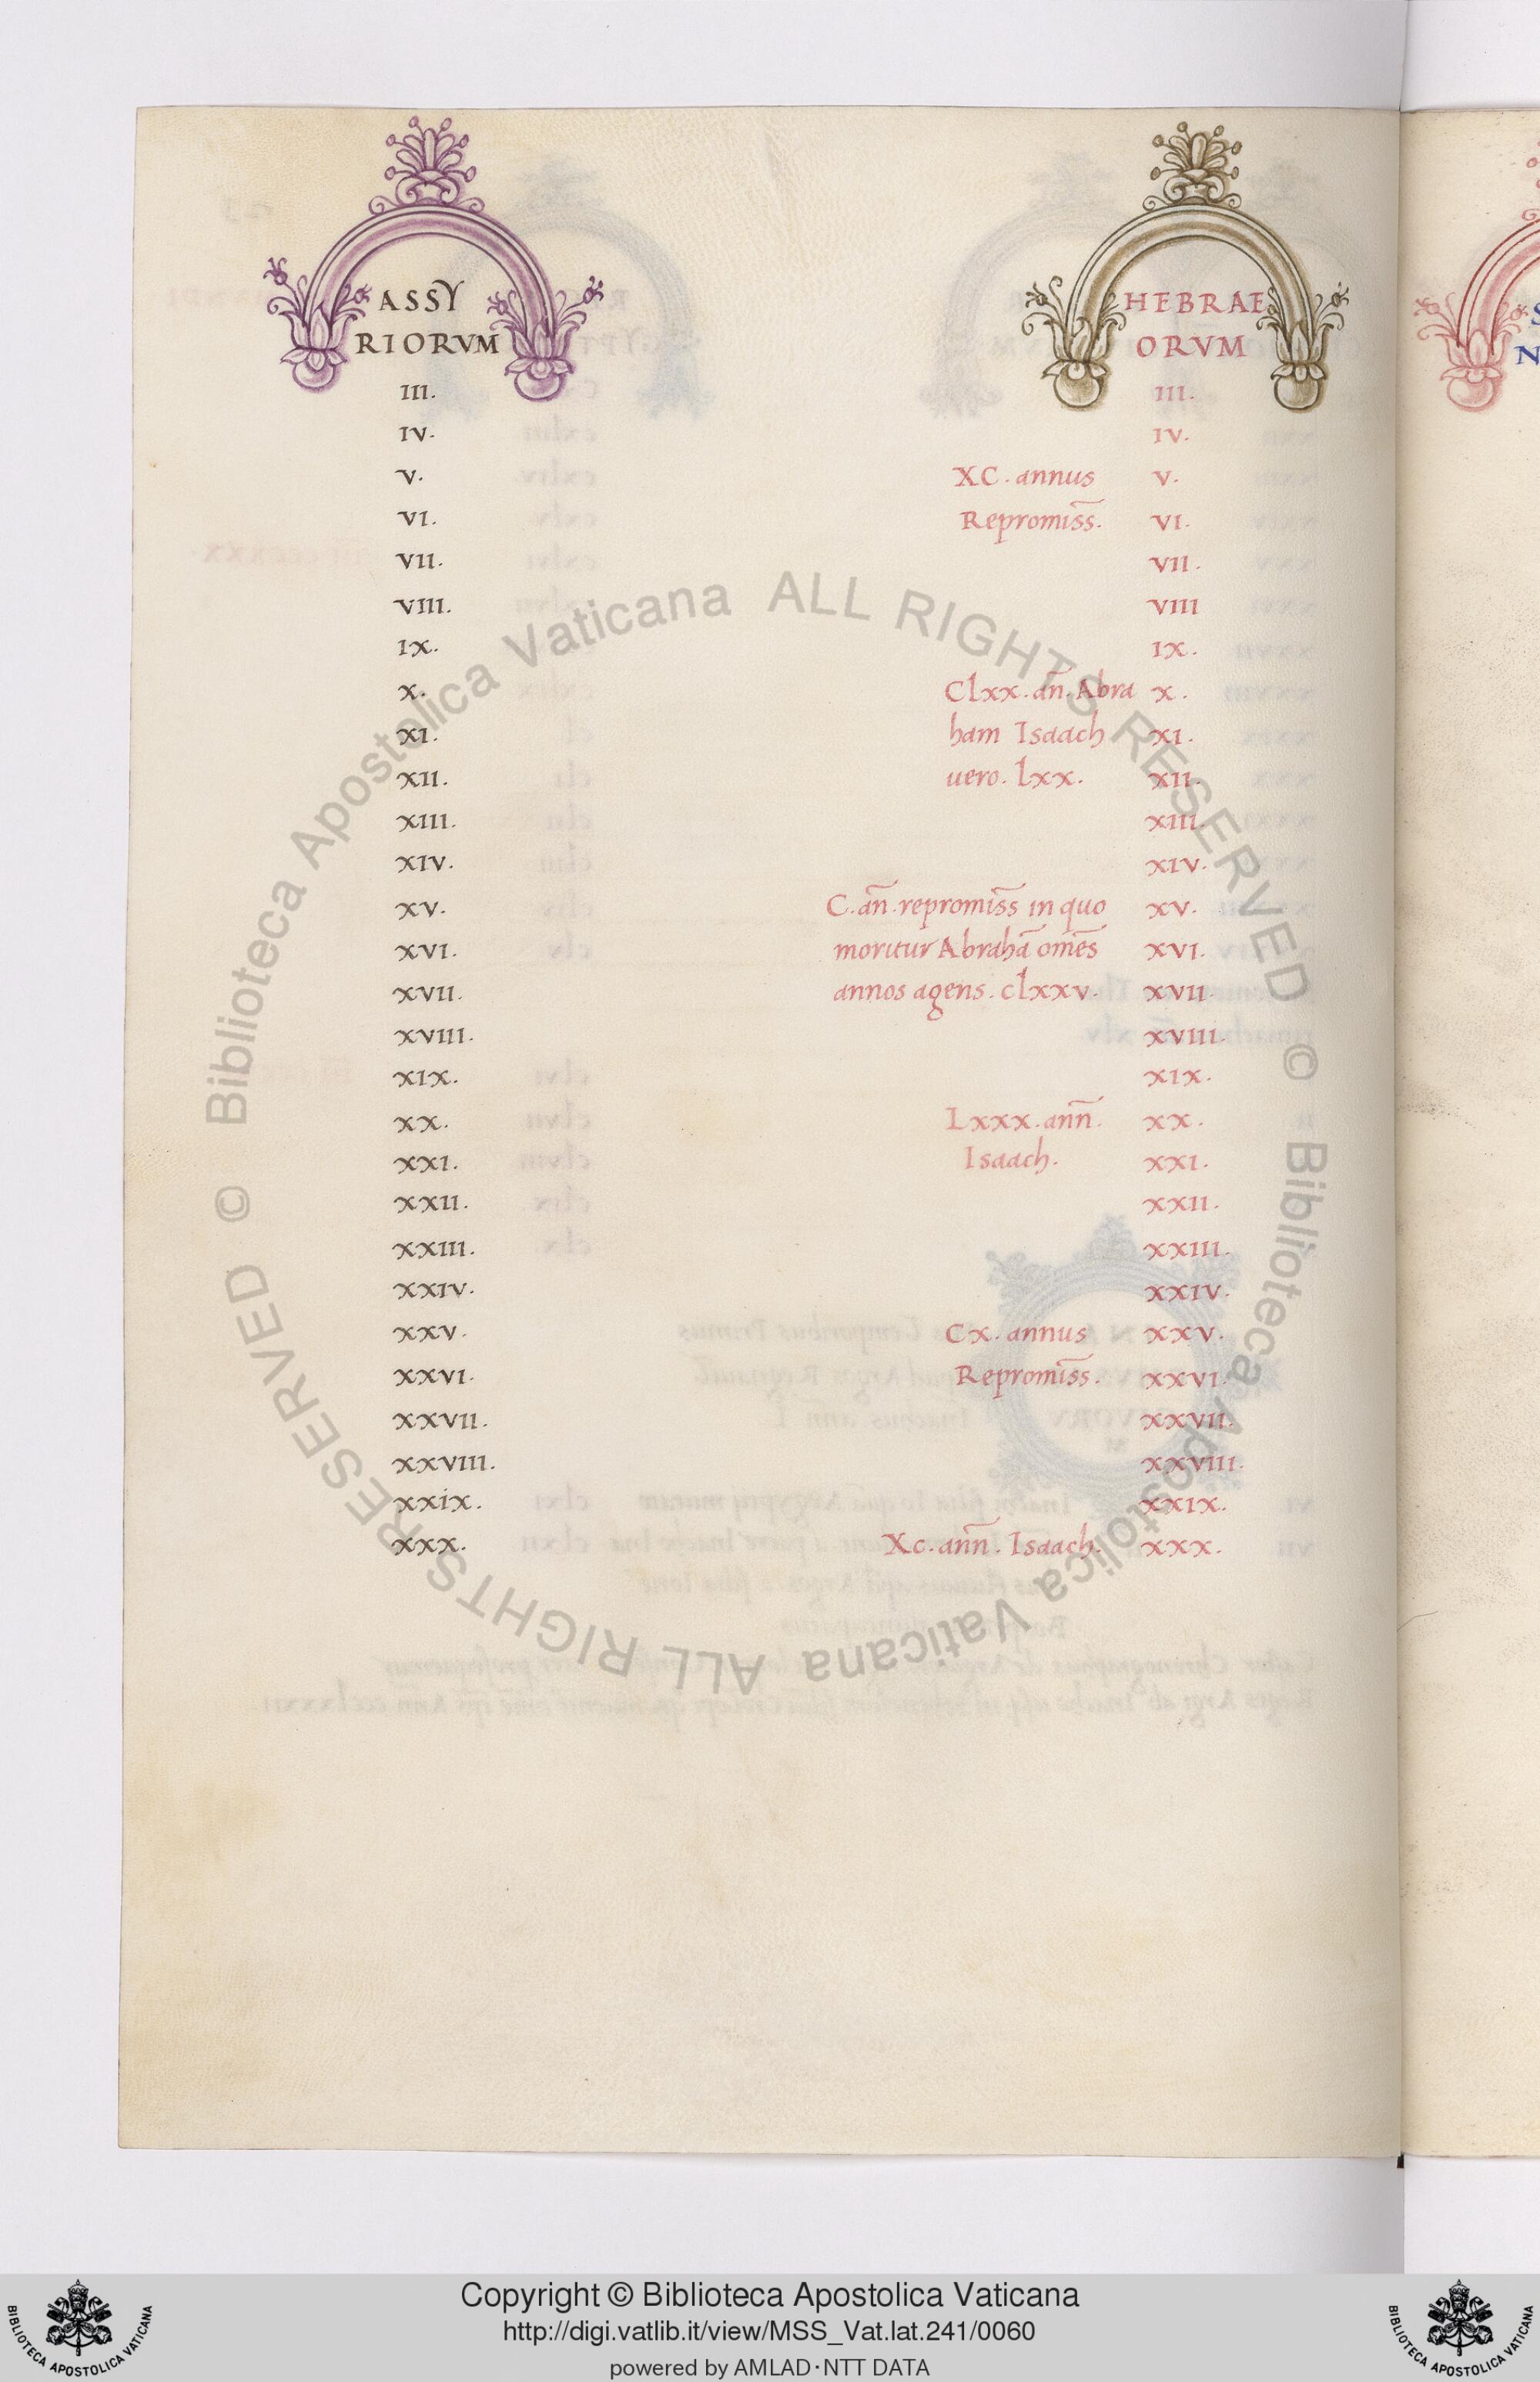 ASSY HEBRAE
RIORVM ORVM
III. III.
IV. IV.
V. XC. annus V.
VI. Repromiss̄. VI.
VII. VII.
VIII. VIII
IX. IX.
X. Clxx. an̄. Abra X.
XI. ham Isaach XI.
XII. uero. lxx. XII.
XIII. XIII.
XIV. XIV.
XV. C. an̄. repromis̄s in quo XV.
XVI. moritur Abrahā om̄es XVI.
XVII. annos agens. clxxv. XVII.
XVIII. XVIII.
XIX. XIX.
XX. Lxxx. ann̄. XX.
XXI. Isaach. XXI.
XXII. XXII.
XXIII. XXIII.
XXIV. XXIV.
XXV. Cx. annus XXV.
XXVI. Repromis̄s. XXVI.
XXVII. XXVII.
XXVIII. XXVIII.
XXIX. XXIX.
XXX. Xc. ann̄. Isaach. XXX.
© Biblioteca Apostolica Vaticana ALL RIGHTS RESERVED
© Biblioteca Apostolica Vaticana ALL RIGHTS RESERVED
Copyright © Biblioteca Apostolica Vaticana
http://digi.vatlib.it/view/MSS_Vat.lat.241/0060
powered by AMLAD·NTT DATA
BIBLIOTECA APOSTOLICA VATICANA
BIBLIOTECA APOSTOLICA VATICANA